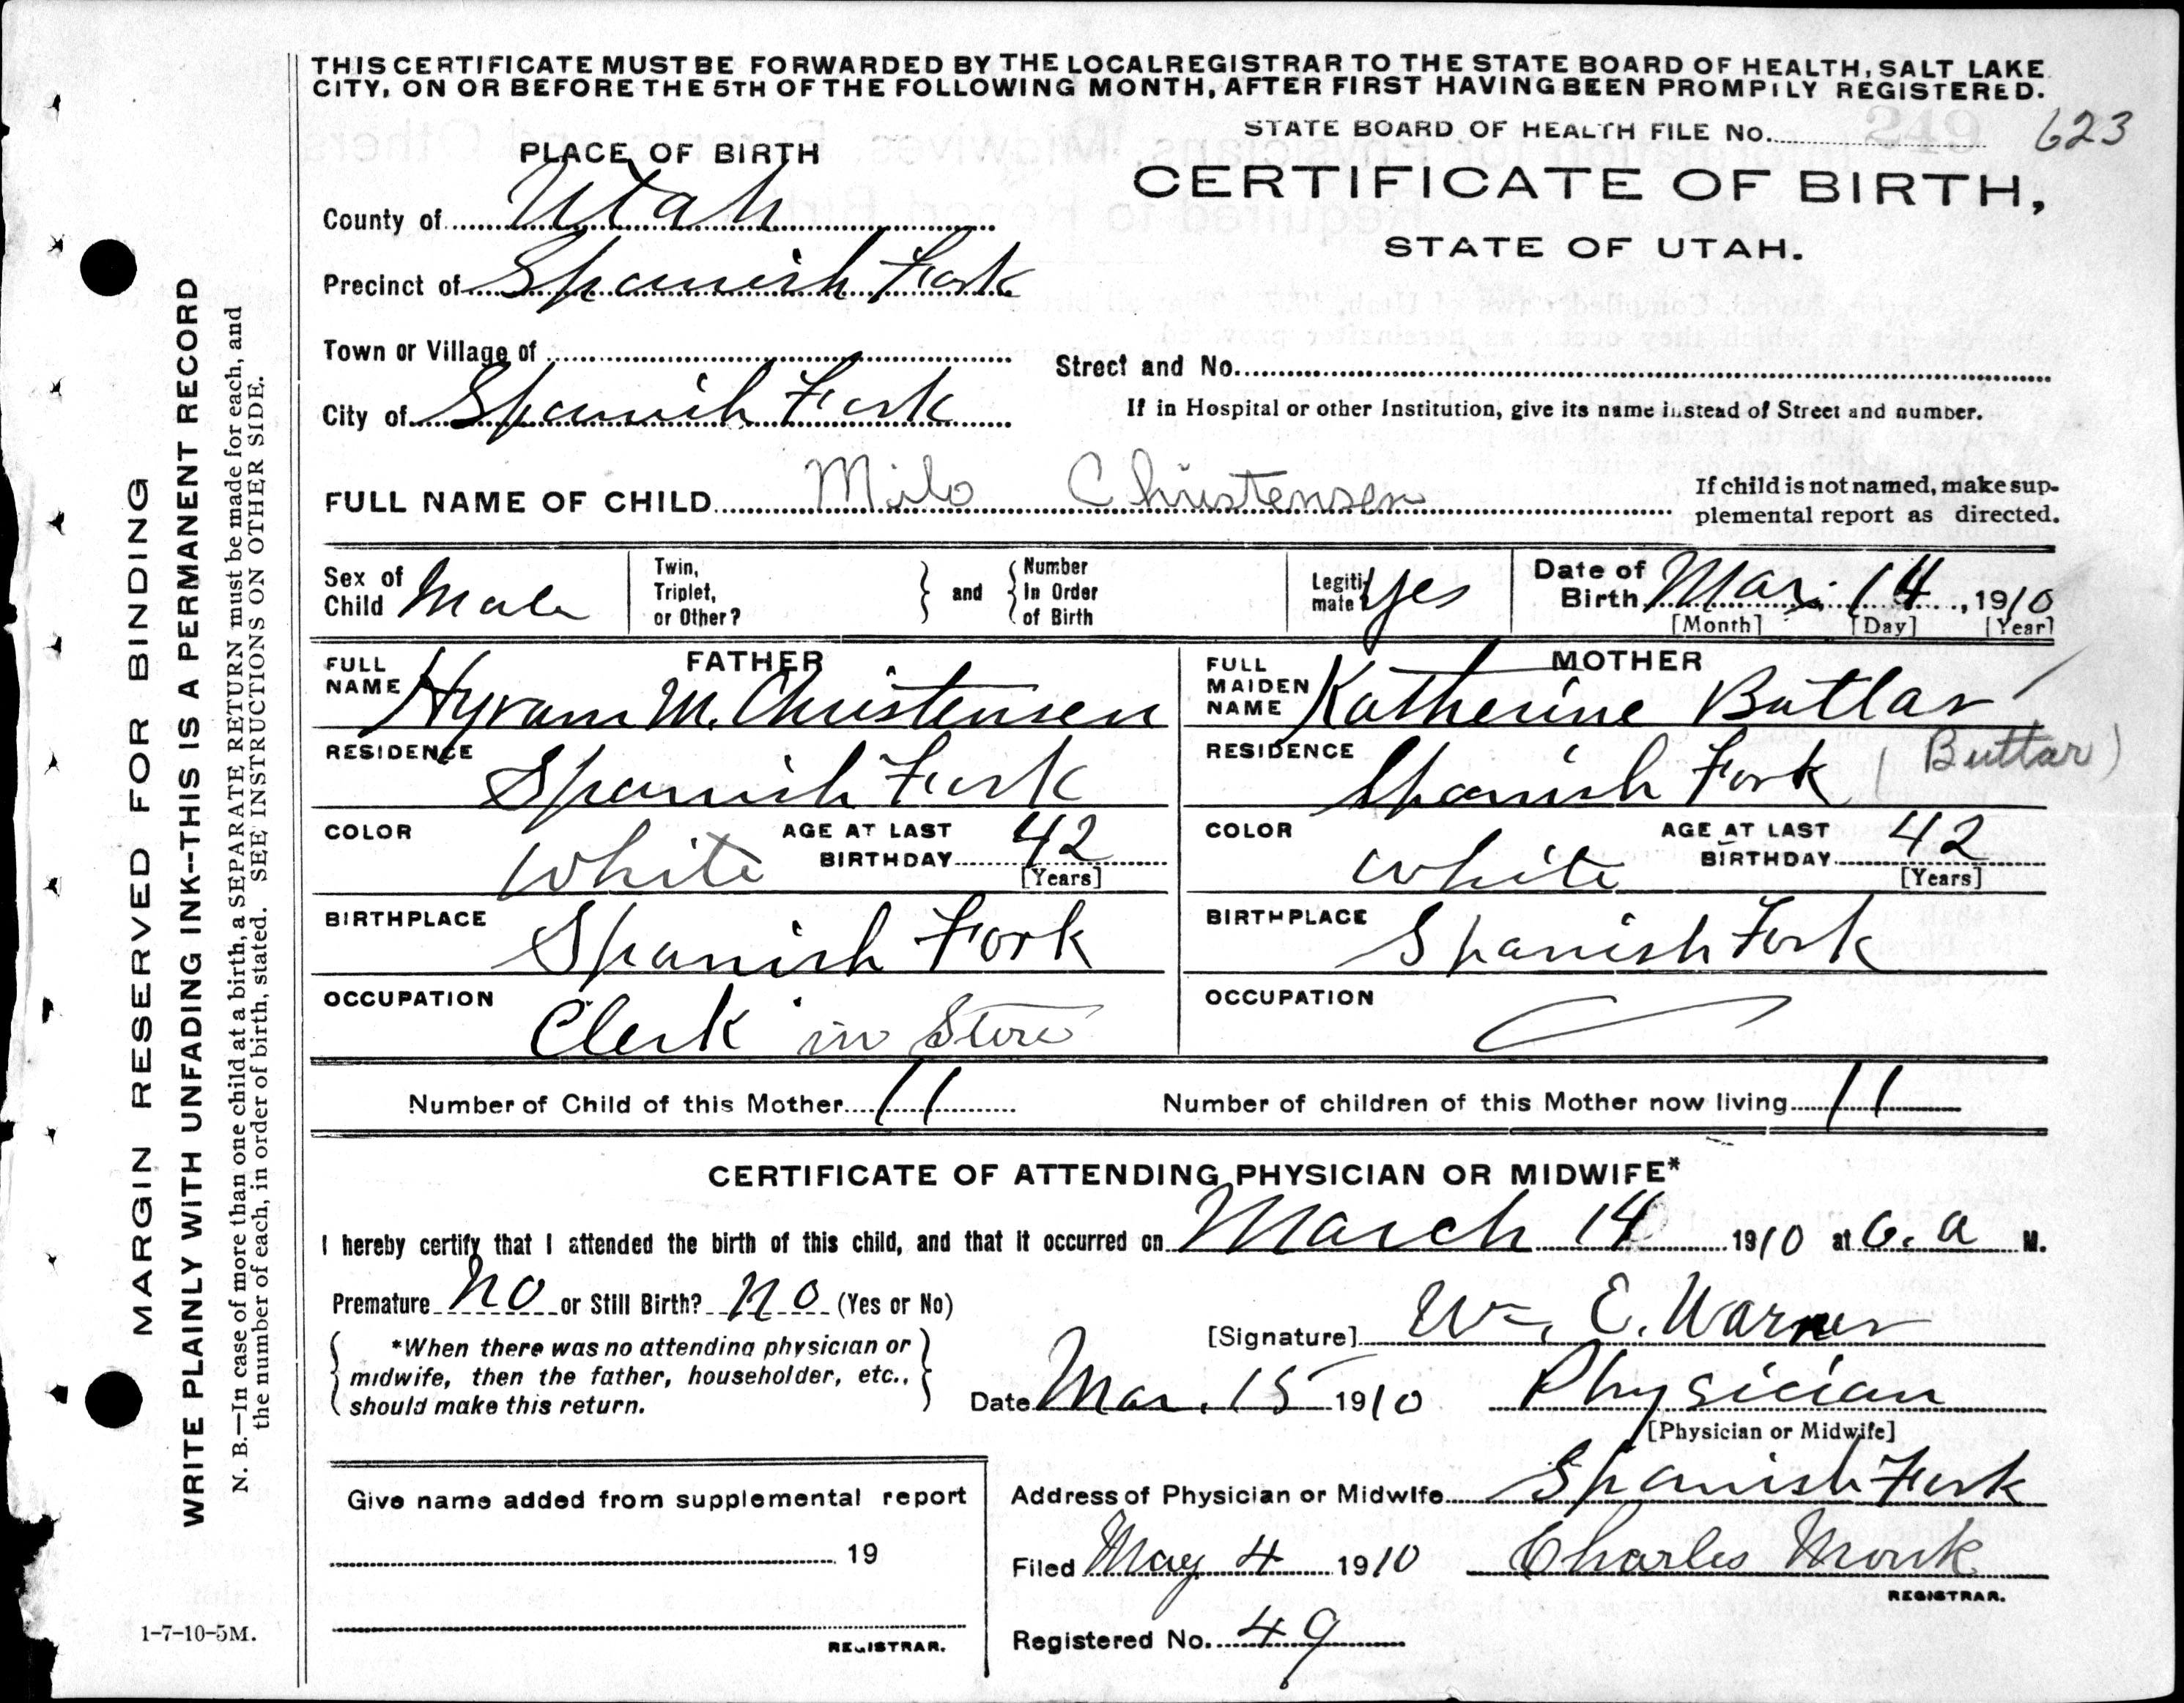 THIS CERTIFICATE MUST BE FORWARDED BY THE LOCAL REGISTRAR TO THE STATE BOARD OF HEALTH, SALT LAKE
CITY, ON OR BEFORE THE 5TH OF THE FOLLOWING MONTH, AFTER FIRST HAVING BEEN PROMPILY REGISTERED.
STATE BOARD OF HEALTH FILE No. 249 623
PLACE OF BIRTH
CERTIFICATE OF BIRTH,
STATE OF UTAH.
County of Utah
Precinct of Spanish Fork
Town or Village of
Street and No.
City of Spanish Fork
If in Hospital or other Institution, give its name instead of Street and number.
FULL NAME OF CHILD Milo Christensen
If child is not named, make sup-
plemental report as directed.
Sex of Child Male
Twin, Triplet, or Other?
and
Number In Order of Birth
Legiti-mate? Yes
Date of Birth Mar. 14, 1910
[Month] [Day] [Year]
FATHER
FULL NAME Hyram M. Christensen
RESIDENCE Spanish Fork
COLOR White
AGE AT LAST BIRTHDAY 42
[Years]
BIRTHPLACE Spanish Fork
OCCUPATION Clerk in Store
MOTHER
FULL MAIDEN NAME Katherine Butlar
RESIDENCE Spanish Fork (Buttar)
COLOR White
AGE AT LAST BIRTHDAY 42
[Years]
BIRTHPLACE Spanish Fork
OCCUPATION
Number of Child of this Mother 11
Number of children of this Mother now living 11
CERTIFICATE OF ATTENDING PHYSICIAN OR MIDWIFE*
I hereby certify that I attended the birth of this child, and that it occurred on March 14 1910 at 6. a M.
Premature No or Still Birth? No (Yes or No)
*When there was no attending physician or
midwife, then the father, householder, etc.,
should make this return.
[Signature] Wm. E. Warner
Date Mar. 15 1910
Physician
[Physician or Midwife]
Give name added from supplemental report
19
REGISTRAR.
Address of Physician or Midwife Spanish Fork
Filed May 4 1910 Charles Monk
REGISTRAR.
Registered No. 49
1-7-10-5M.
MARGIN RESERVED FOR BINDING
WRITE PLAINLY WITH UNFADING INK--THIS IS A PERMANENT RECORD
N. B.—In case of more than one child at a birth, a SEPARATE RETURN must be made for each, and
the number of each, in order of birth, stated. SEE INSTRUCTIONS ON OTHER SIDE.